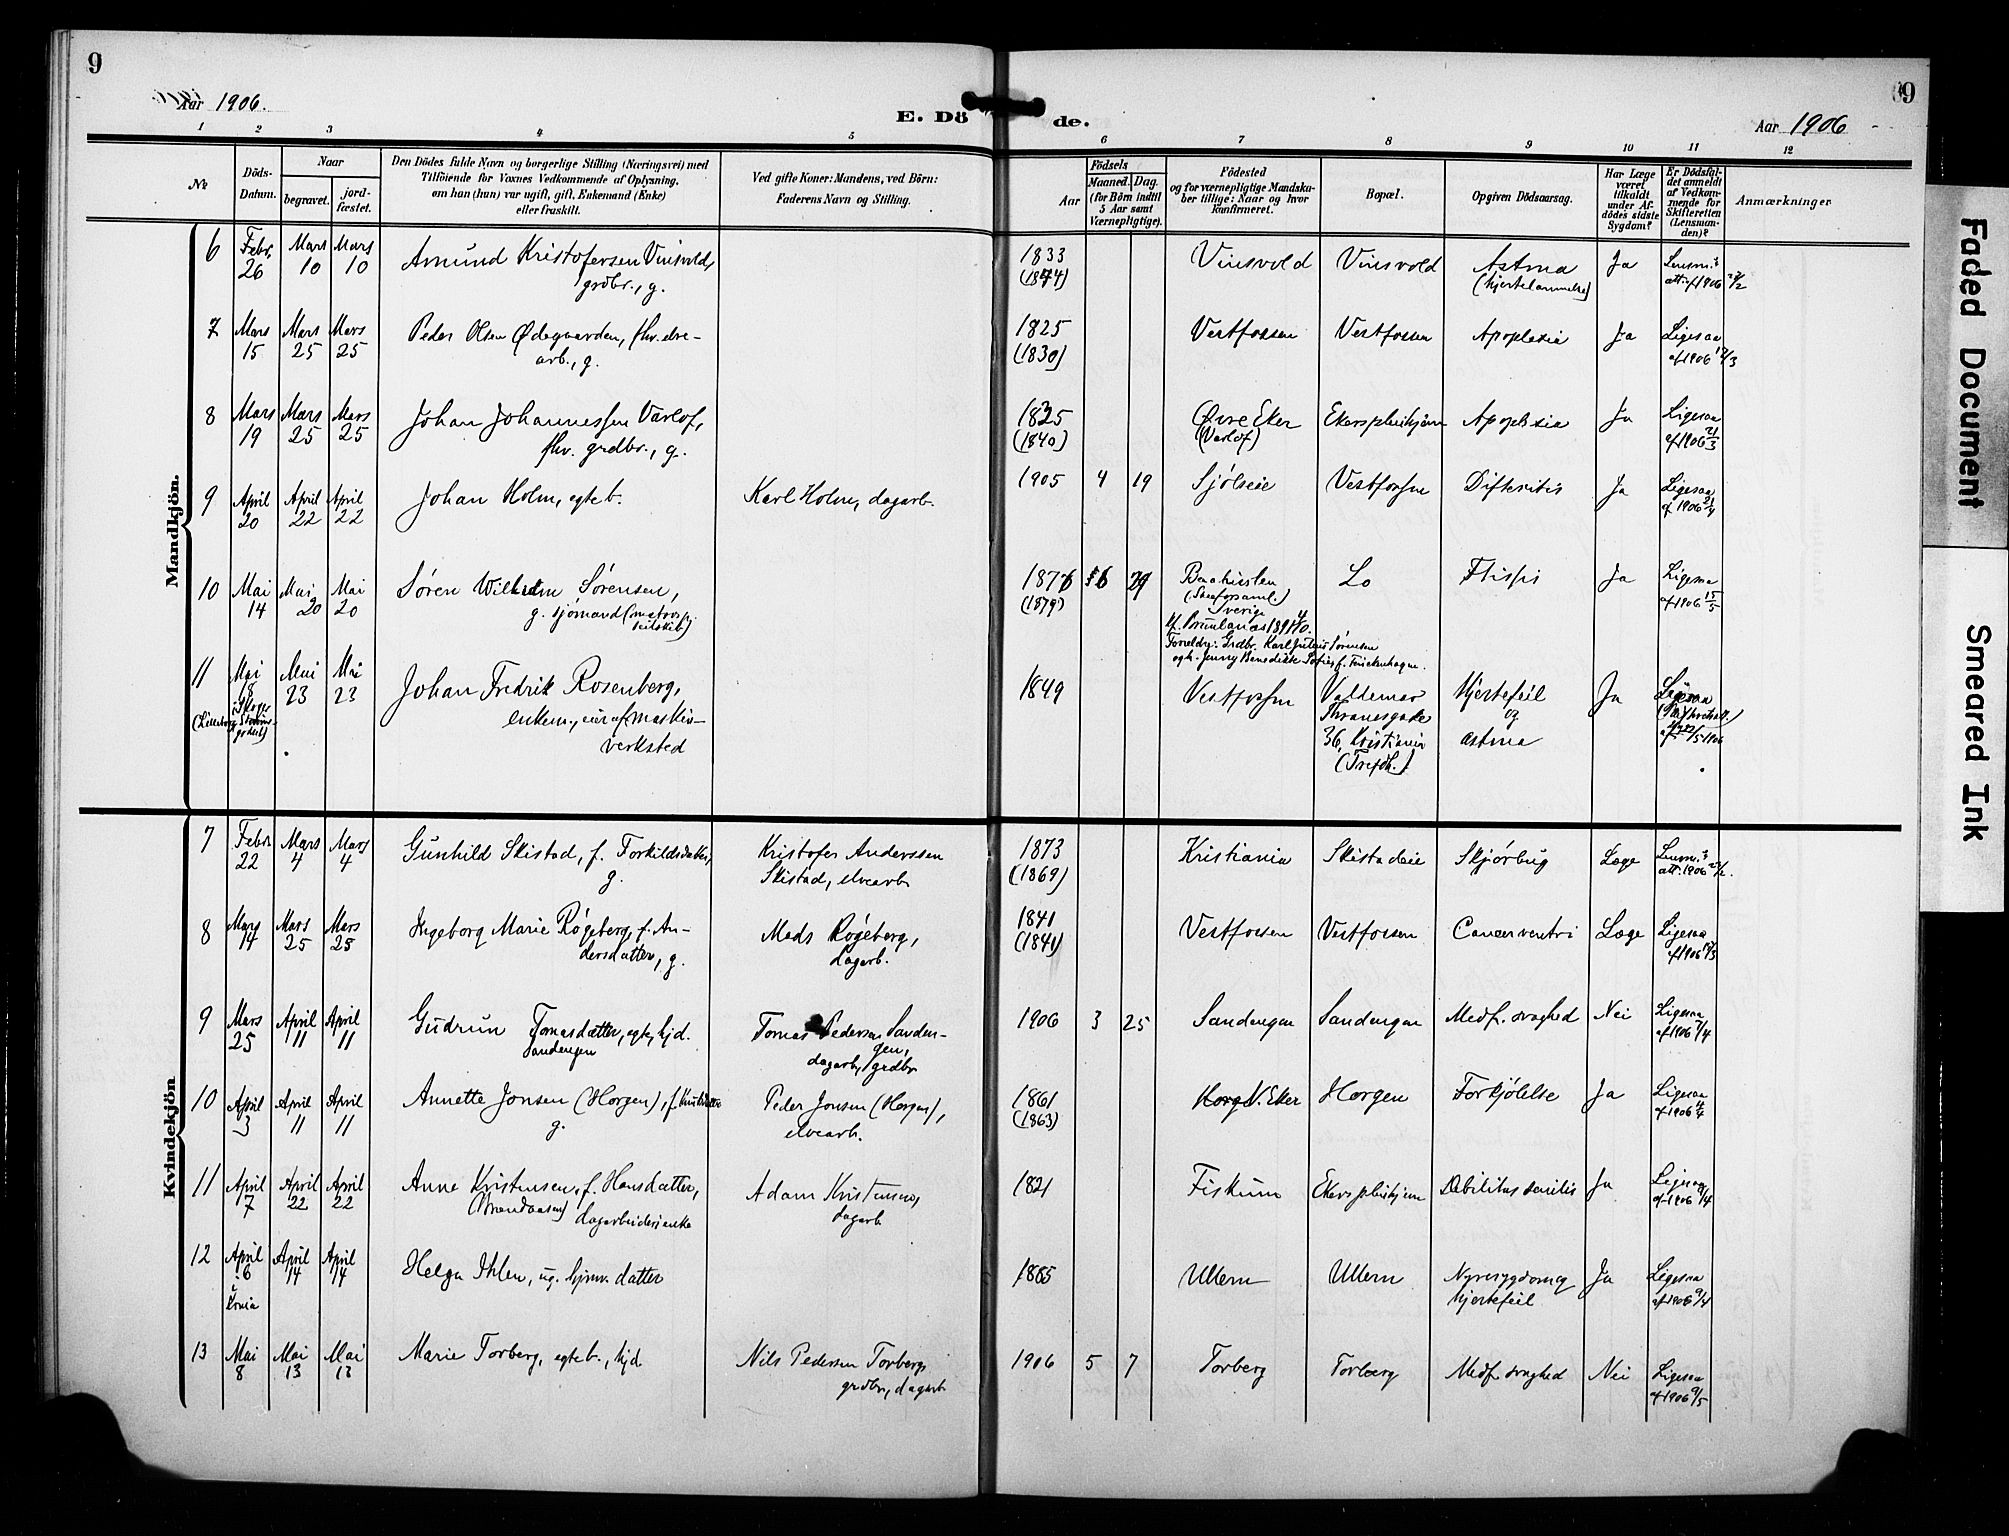 9
Aar 1906.
E. Döde.
Aar 1906
9
1 2 3 4 5 6 7 8 9 10 11 12
№
Döds-Datum.
Naar
begravet.
jord-fæstet.
Den Dödes fulde Navn og borgerlige Stilling (Næringsvei) med
Tilföiende for Voxnes Vedkommende af Oplysning,
om han (hun) var ugift, gift, Enkemand (Enke)
eller fraskilt.
Ved gifte Koner: Mandens, ved Börn:
Faderens Navn og Stilling.
Födsels
Aar
Maaned. Dag.
(for Börn indtil
5 Aar samt
Værnepligtige).
Födested
og for værnepligtige Mandska-
ber tillige: Naar og hvor
konfirmeret.
Bopæl.
Opgiven Dödsaarsag.
Har Læge
været
tilkaldt
under Af-
dödes sidste
Sygdom?
Er Dödsfal-
det anmeldt
af Vedkom-
mende for
Skifteretten
(Lensman-
den)?
Anmærkninger
Mandkjön.
6 Febr. 26 Mars 10 Mars 10 Amund Kristofersen Vinsvold, 1833 Vinsvold Vinsvold Astma Ja Lensm.s
grdbr., g. (1844) (hjertelammelse) att. af 1906 2/2
7 Mars 15 Mars 25 Mars 25 Peder Olsen Ødegaarden, fhv. elve- 1825 Vestfossen Vestfossen Apoplexia Ja Ligesaa
arb., g. (1830) af 1906 17/3
8 Mars 19 Mars 25 Mars 25 Johan Johannessen Varlof, 1825 Øvre Eker Ekerspleiehjem Apoplexia Ja Ligesaa
fhv. grdbr., g. (1840) (Varlof) af 1906 21/3
9 April 20 April 22 April 22 Johan Holm, egteb. Karl Holm, dagarb. 1905 4 19 Sjölseie Vestfossen Difteritis Ja Ligesaa
af 1906 21/4
10 Mai 14 Mai 20 Mai 20 Søren Wilhelm Sørensen, 1876 6 29 Lo Ftisis Ja Ligesaa
g. sjømand (1879) af 1906 15/5
Sverige
Forældre: Grdbr. Karl Julius Sörensen
og h. Jenny Benedikte Sofie f.
11 Mai 18 Mai 23 Mai 23 Johan Fredrik Rosenberg, 1849 Vestfossen Valdemar Hjertefeil Ja Ligesaa
enkem., eier af maskin- Thranesgade og
verksted 36, Kristiania astma
Kvindekjön
7 Febr 22 Mars 4 Mars 4 Gunhild Skistad, f. Torkildsdatter, Kristofer Anderssen 1873 Kristiania Skistadeie Skjørbug Læge Lensm.s
g. Skistad, elvearb (1869) att. 1906
8 Mars 14 Mars 25 Mars 25 Ingeborg Marie Røgeberg, f. An- Mads Røgeberg, 1841 Vestfossen Vestfossen Cancer ventri Læge Ligesaa
dersdatter, g. dagarb. (1841) af 1906 17/3
9 Mars 25 April 11 April 11 Gudrun Tomasdatter, egte, hjd. Tomas Pedersen Sanden- 1906 3 25 Sandengen Sandengen Medf. svaghed Nei Ligesaa
Sandengen gen, af 1906 7/4
dagarb, grdbr
10 April 3 April 11 April 11 Annette Jonsen (Horgen), f. Knutsdatter Peder Jonsen (Horgen), 1861 N. Eker Horgen Forkjølelse Ja Ligesaa
g. elvearb. (1863) af 1906 4/4
11 April 7 April 22 April 22 Anne Kristensen, f. Hansdatter, Adam Kristensen, 1821 Fiskum Ekerspleiehjem Debilitas senilis Ja Ligesaa
dagarbeiderenke dagarb af 1906 9/4
12 April 6 April 14 April 14 Helga Ihlen, ug. hjmv. datter 1885 Ullern Ullern Nyresygdom og Ja Ligesaa
i Krnia hjertefeil af 1906 9/4
13 Mai 8 Mai 13 Mai 13 Marie Torberg, egteb., hjd. Nils Pedersen Torberg, 1906 5 7 Torberg Torberg Medf. svaghed Nei Ligesaa
grdbr, dagarb af 1906 9/5
Faded Document
Smeared Ink